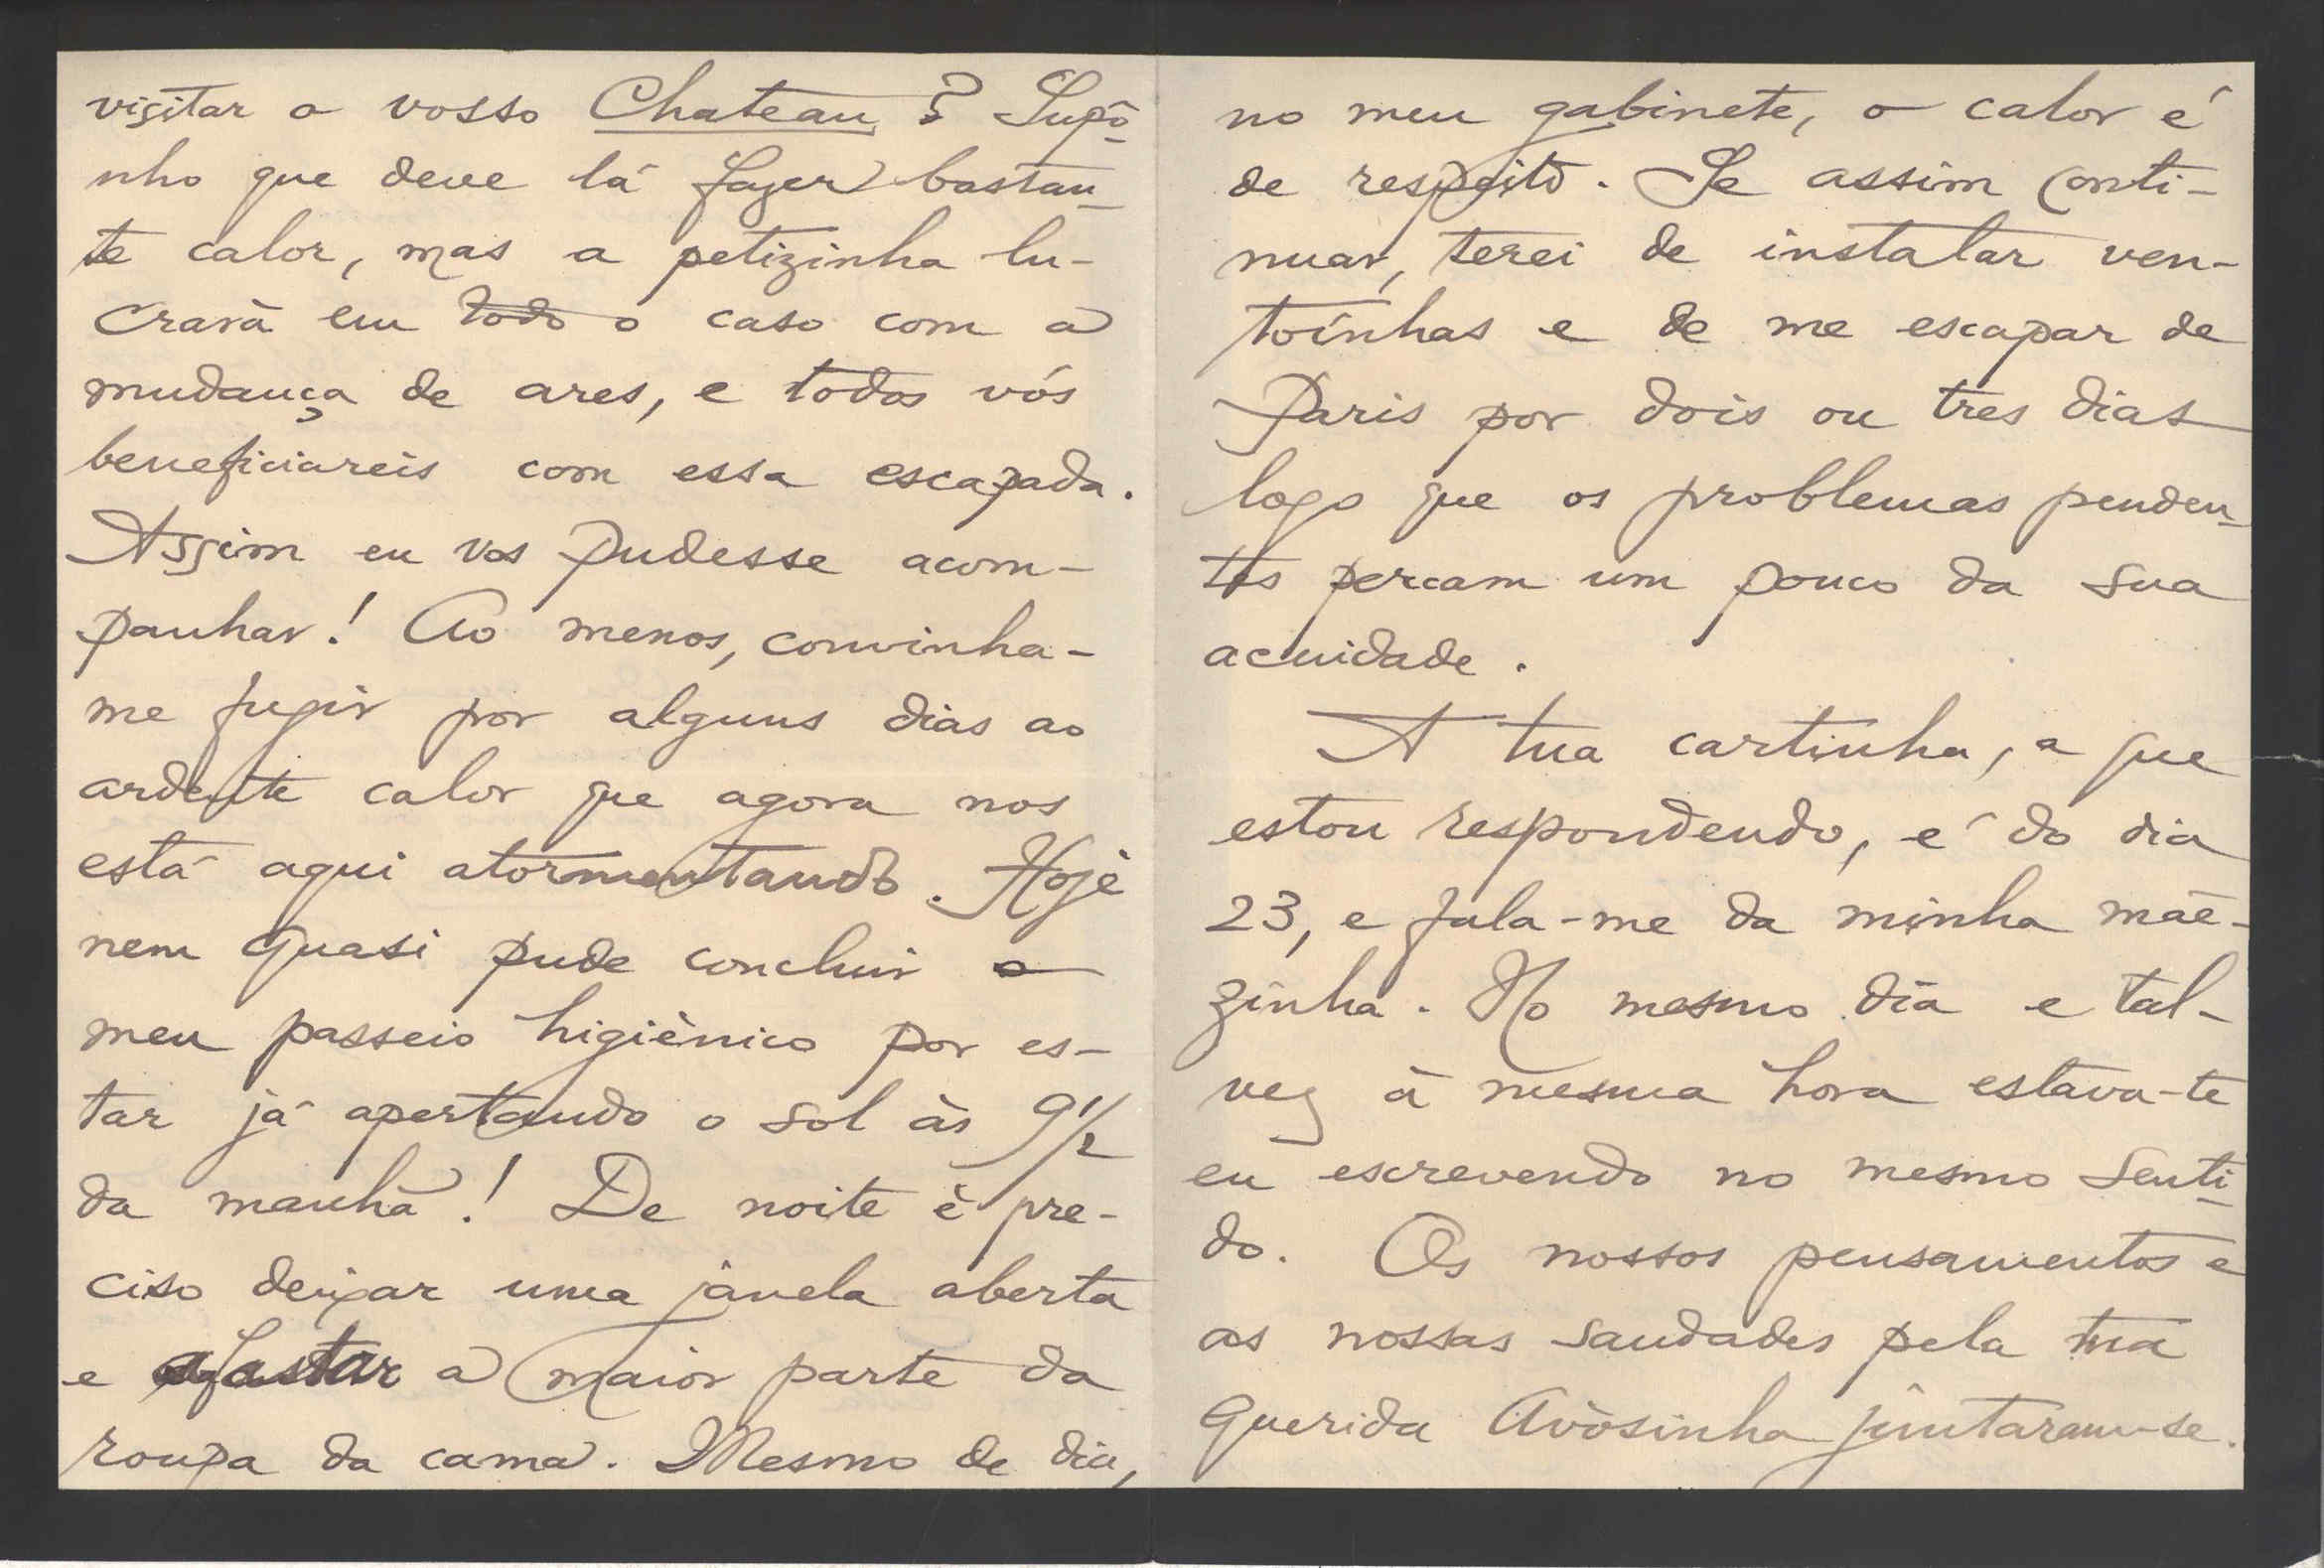 visitar o vosso Chateau? Supô-
nho que deve lá fazer bastan-
te calor, mas a petizinha lu-
crará em todo o caso com a
mudança de ares, e todos vós
beneficiareis com essa escapada.
Assim eu vos pudesse acom-
panhar! Ao menos, convinha-
me fugir por alguns dias ao
ardente calor que agora nos
está aqui atormentando. Hoje
nem quasi pude concluir o
meu passeio higiènico por es-
tar já apertando o sol às 9 1/2
da manhã! De noite é pre-
ciso deixar uma janela aberta
e afastar a maior parte da
roupa da cama. Mesmo de dia,
no meu gabinete, o calor é
de respeito. Se assim conti-
nuar, terei de instalar ven-
toínhas e de me escapar de
Paris por dois ou tres dias
logo que os problemas penden-
tes percam um pouco da sua
acuidade.
A tua cartinha, a que
estou respondendo, é do dia
23, e fala-me da minha mãe-
zinha. No mesmo dia e tal-
vez à mesma hora estava-te
eu escrevendo no mesmo senti-
do. Os nossos pensamentos e
as nossas saudades pela tua
querida Avòsinha juntaram-se.